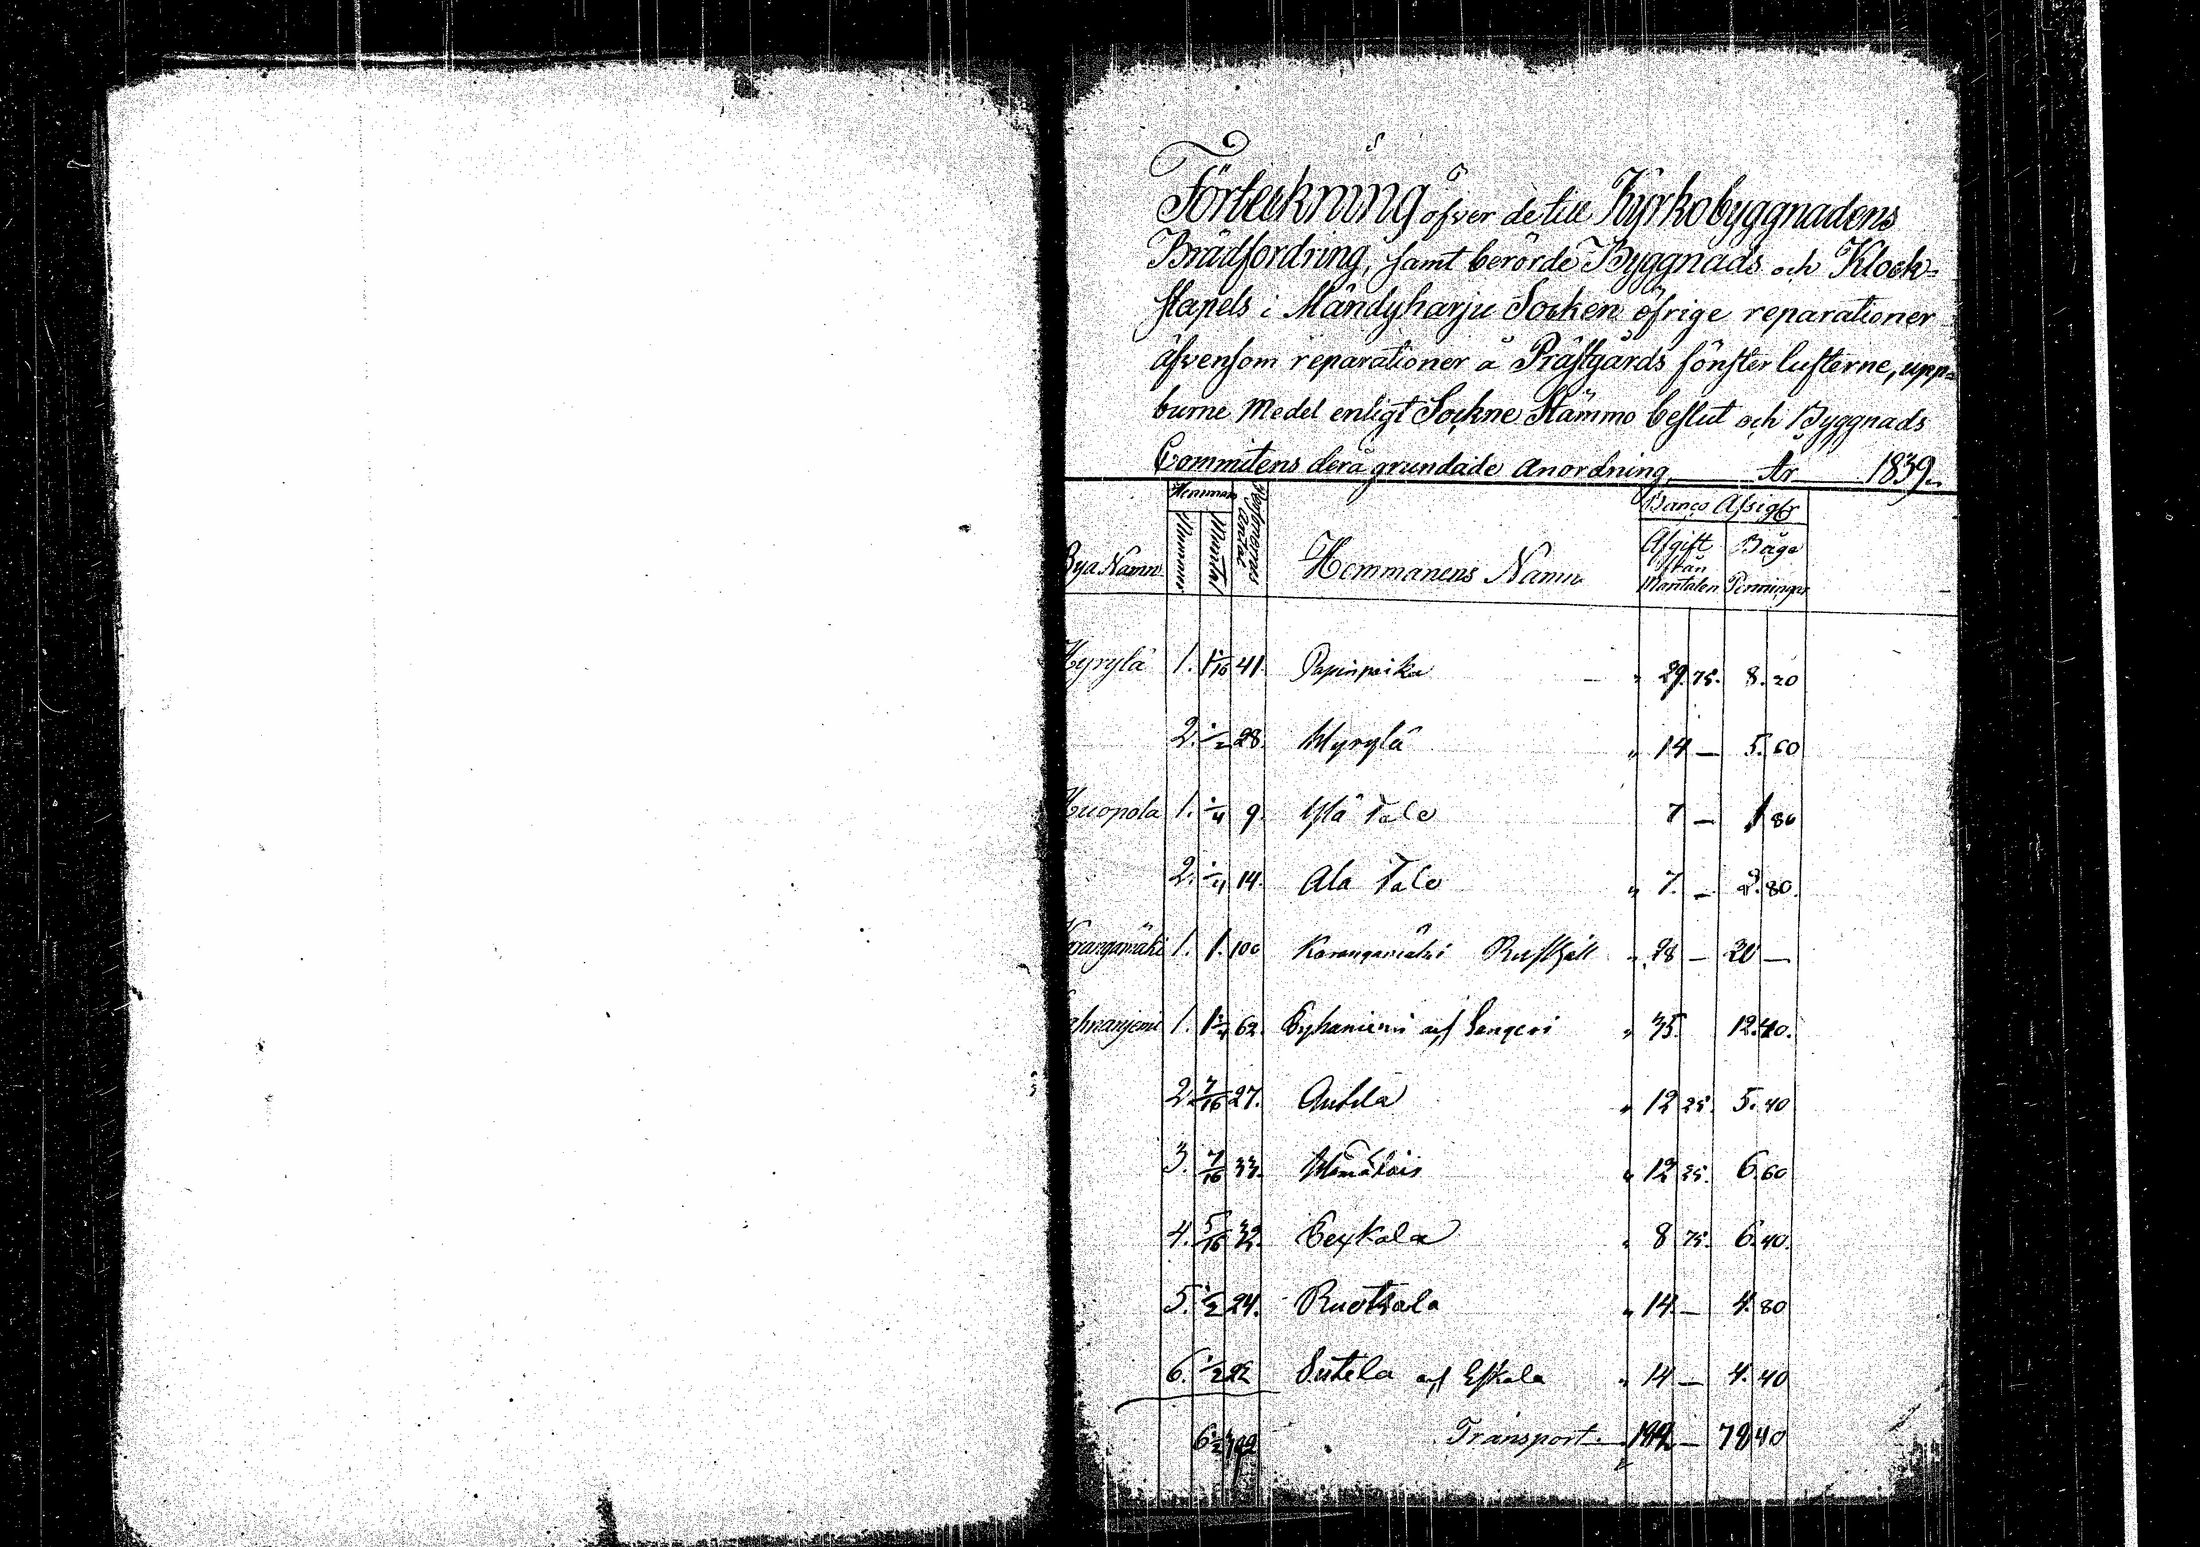 Förteckning öfver de till Kyrkobyggnadens
Brädfordring, samt berörde Byggnads och Klock-
stapels i Mändyharju Socken öfrige reparationer
äfvensom reparationer å Prästgårds fönster lufterne, upp-
burne Medel enligt Sockne Stämmo beslut och Byggnads
Committens derå grundade anordning År 1839.
Hemmans Banco Assigr
Bya Namn Nummer Mantal Personernes Antal Hemmanens Namn Afgift från Mantalen Båge Penningar
Kyrylä 1. 1 1/16 41. Papinpaika " 29. 75. 8. 20
2. 1/2 28. Kyrylä " 14 — 5. 60
Kuopola 1. 1/4 9. Ylä Talo 7 — 1 80
2. 1/4 14. Ala Talo " 7. — 2. 80.
Karangamäki 1. 1. 100 Karangamäki Rusthåll " 28 — 20 —
1. 1 1/4 62. Pyhäniemi " 35. 12. 40.
2. 7/16 27. Anttila " 12 25. 5. 40
3. 7/16 33. " 12 25. 6. 60
4. 5/16 32. " 8 75. 6. 40.
5. 1/2 24. Ruotsala " 14. — 4. 80
6. 1/2 22 Sutela " 14 — 4. 40
6 1/2 392 Transport. 182 — 78 40